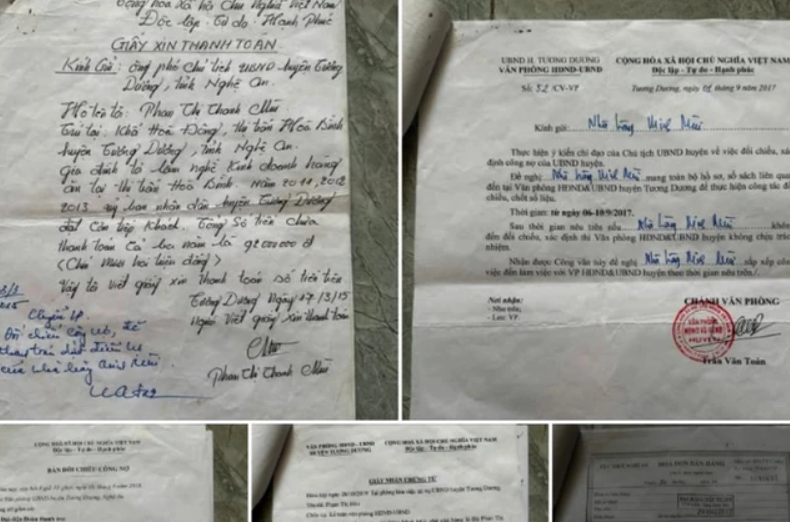 Cộng hòa Xã hội Chủ Nghĩa Việt Nam
Độc lập - Tự do - Hạnh Phúc
GIẤY XIN THANH TOÁN
Kính Gửi: ông phó chủ tịch UBND huyện Tương
Dương, tỉnh Nghệ An.
Họ tên tôi: Phan Thị Thanh Mùi
Trú tại: Khối Hoà Đông, thị trấn Hoà Bình
huyện Tương Dương, tỉnh Nghệ An.
gia đình tôi làm nghề Kinh doanh hàng
ăn tại thị trấn Hoà Bình. Năm 2011, 2012
2013 uỷ ban nhân dân huyện Tương Dương
đặt cơm tiếp Khách. Tổng Số tiền chưa
thanh toán cả ba năm là 92000000đ
(Chín mươi hai triệu đồng)
Vậy tôi viết giấy xin thanh toán số tiền trên
Tương Dương Ngày 17/3/15
Người Viết giấy xin thanh toán
Phan Thị Thanh Mùi
Chuyển VP
Đối chiếu công nợ, để
của nhà hàng
UBND H. TƯƠNG DƯƠNG
VĂN PHÒNG HĐND-UBND
CỘNG HÒA XÃ HỘI CHỦ NGHĨA VIỆT NAM
Độc lập - Tự do - Hạnh phúc
Số: 52 /CV-VP
Tương Dương, ngày 01 tháng 9 năm 2017
Kính gửi: Nhà hàng Minh Mùi
Thực hiện ý kiến chỉ đạo của Chủ tịch UBND huyện về việc đối chiếu, xác
định công nợ của UBND huyện.
Đề nghị Nhà hàng Minh Mùi mang toàn bộ hồ sơ, sổ sách liên quan
đến tại Văn phòng HĐND&UBND huyện Tương Dương để thực hiện công tác đối
chiếu, chốt số liệu.
Thời gian: từ ngày 06-10/9/2017.
Sau thời gian nêu trên nếu Nhà hàng Minh Mùi không
đến đối chiếu, xác định thì Văn phòng HĐND&UBND huyện không chịu trách
nhiệm.
Nhận được Công văn này đề nghị Nhà hàng Minh Mùi sắp xếp công
việc đến làm việc với VP HĐND&UBND huyện theo thời gian nêu trên./.
Nơi nhận:
- Như trên;
- Lưu: VP.
CHÁNH VĂN PHÒNG
VĂN PHÒNG
HĐND VÀ UBND
HUYỆN
Trần Văn Toản
CỘNG HÒA XÃ HỘI CHỦ NGHĨA VIỆT NAM
Độc lập - Tự do - Hạnh phúc
BẢN ĐỐI CHIẾU CÔNG NỢ
VĂN PHÒNG HĐND - UBND
HUYỆN TƯƠNG DƯƠNG
CỘNG HÒA XÃ HỘI CHỦ NGHĨA VIỆT NAM
Độc lập - Tự do - Hạnh phúc
GIẤY NHẬN CHỨNG TỪ
HÓA ĐƠN BÁN HÀNG